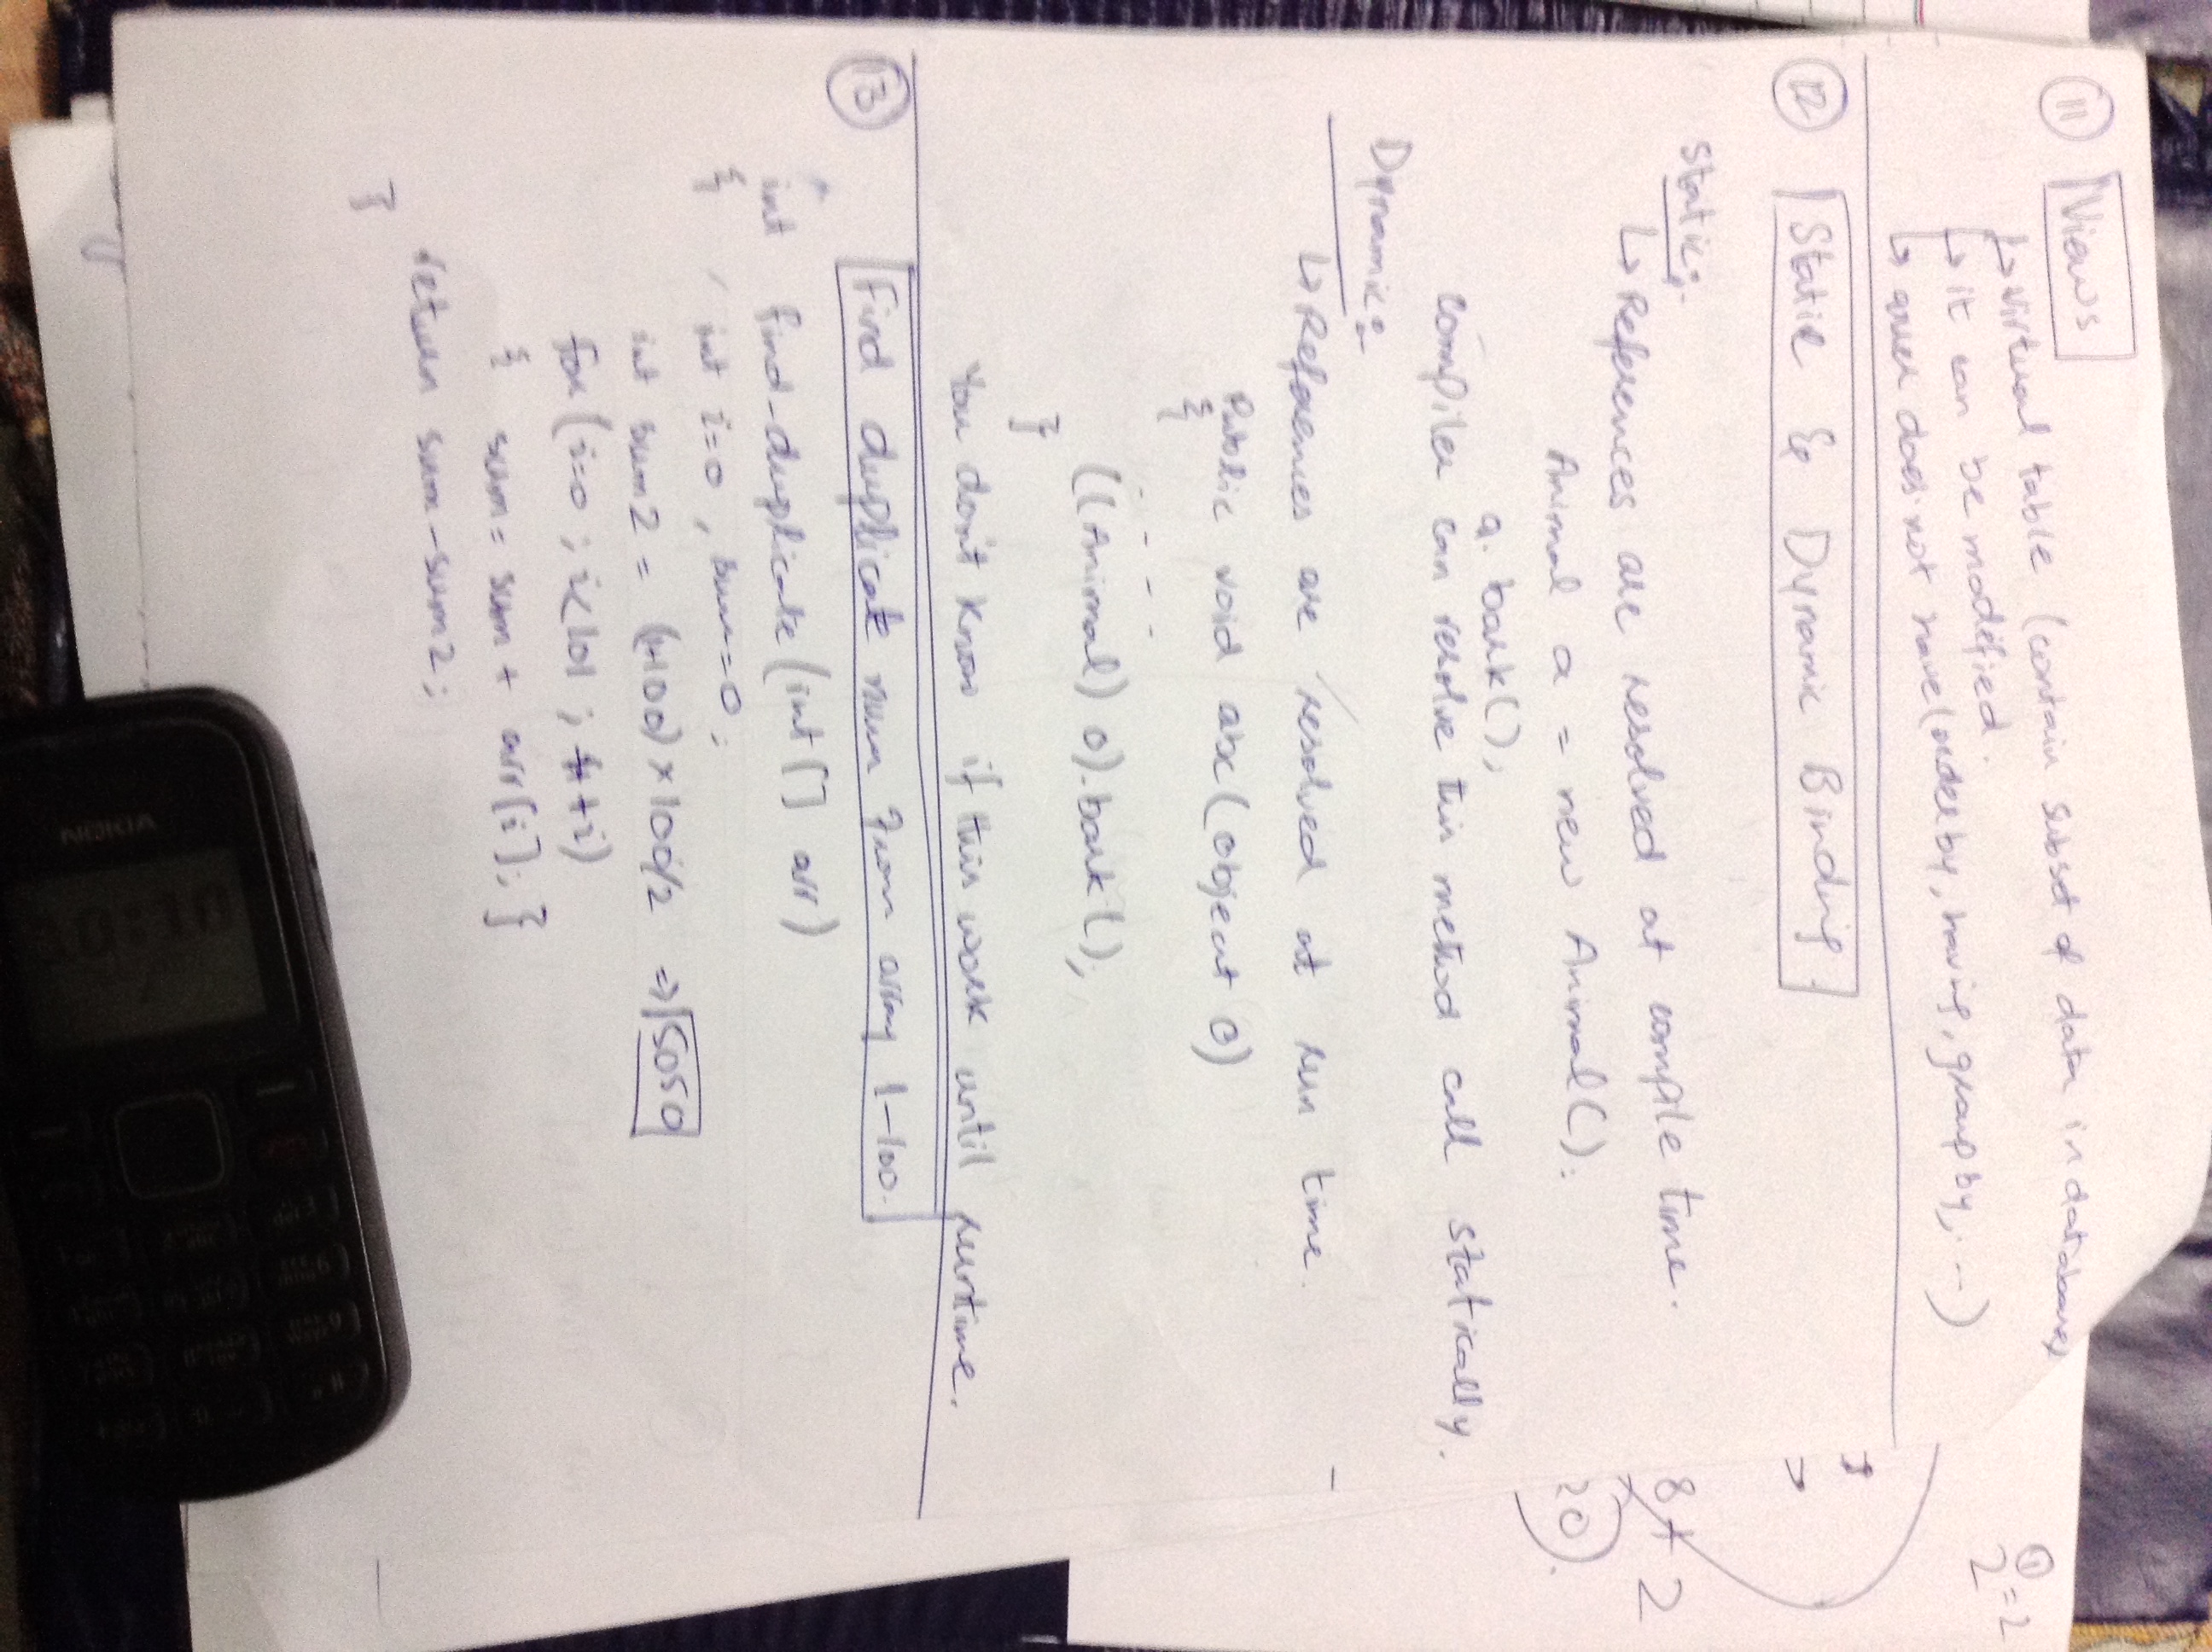 11 Views
↳ Virtual table (contain subset of data in database)
↳ it can be modified.
↳ does not have (order by, having, group by, ...)
12 Static & Dynamic Binding.
Static:-
↳ References are resolved at compile time.
Animal a = new Animal();
a. bark();
Compiler can resolve this method call statically.
Dynamic:-
↳ References are resolved at run time.
Public void abc (Object O)
{
- - - -
((Animal) o).bark();
}
You don't know if this work until runtime.
13 Find duplicate num from array 1-100.
int find-duplicate (int [] arr)
{ int i=0, sum=0;
int sum2 = (1+100) × 100/2 ⇒ 5050
for (i=0 ; i<101 ; ++i)
{ sum = sum + arr[i]; }
return sum - sum2;
}
1
2 = 2
}
>
8 + 2
20).
NOKIA